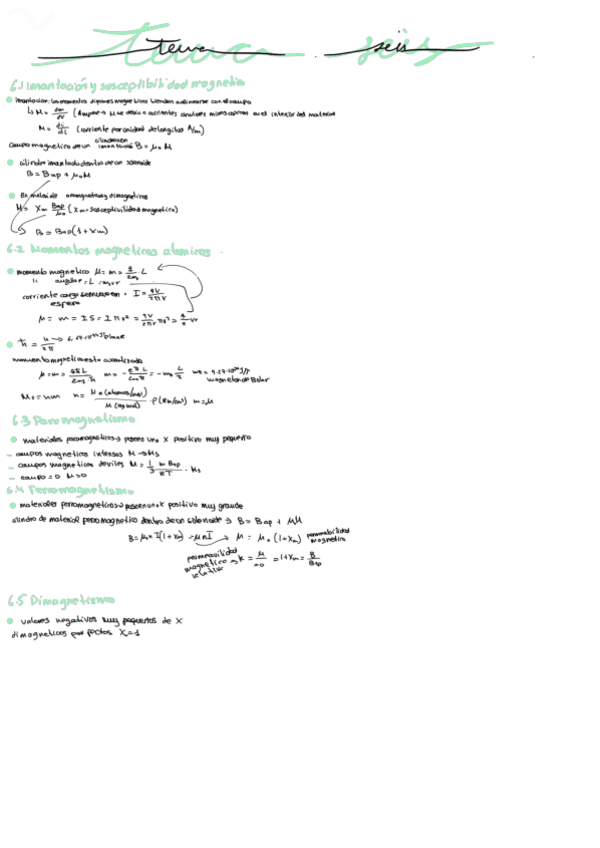 tema seis
6.1 Imantación y susceptibilidad magnetic
imantacion: los momentos dipolares magneticos tienden a alinearse con el campo
M = dm/dV (Ampere → M se debe a corrientes circulares microscopicas en el interior del material
M = di/dL (corriente por unidad de longitud A/m)
campo magnetico de un cilindro con imantacion B = μ₀ M
cilindro imantado dentro de un solenoide
B = Bap + μ₀M
En materiales paramagneticos y dimagneticos
M = Xm Bap/μ₀ (Xm = susceptibilidad magnetica)
B = Bap(1 + Xm)
6.2 Momentos magneticos atomicos
momento magnetico μ = m = q/2mq · L
" angular = L = mvr
corriente carga se mueve en esfera · I = qv/2πr
μ = m = I S = I πr² = qv/2πr πr² = q/2 vr
ħ = h/2π → 6.
momento magnetico esta cuantizado
magneton de Bohr
Ms = nm n =
6.3 Paramagnetismo
materiales paramagneticos → poseen una X positivo muy pequeño
– campos magneticos intensos M → Ms
– campos magneticos deviles M = 1/3 m Bap/KT · Ms
– campo = 0 M = 0
6.4 Ferromagnetismo
materiales ferromagneticos → poseen un X positivo muy grande
cilindro de material ferromagnetico dentro de un solenoide → B = Bap + μM
B = μ₀ n I(1 + Xm) = μ n I → μ = μ₀ (1 + Xm) permeabilidad magnetica
permeavilidad magnetica relativa → K = μ/μ₀ = 1 + Xm = B/Bap
6.5 Dimagnetismo
valores negativos muy pequeños de X
dimagneticos perfectos X = -1